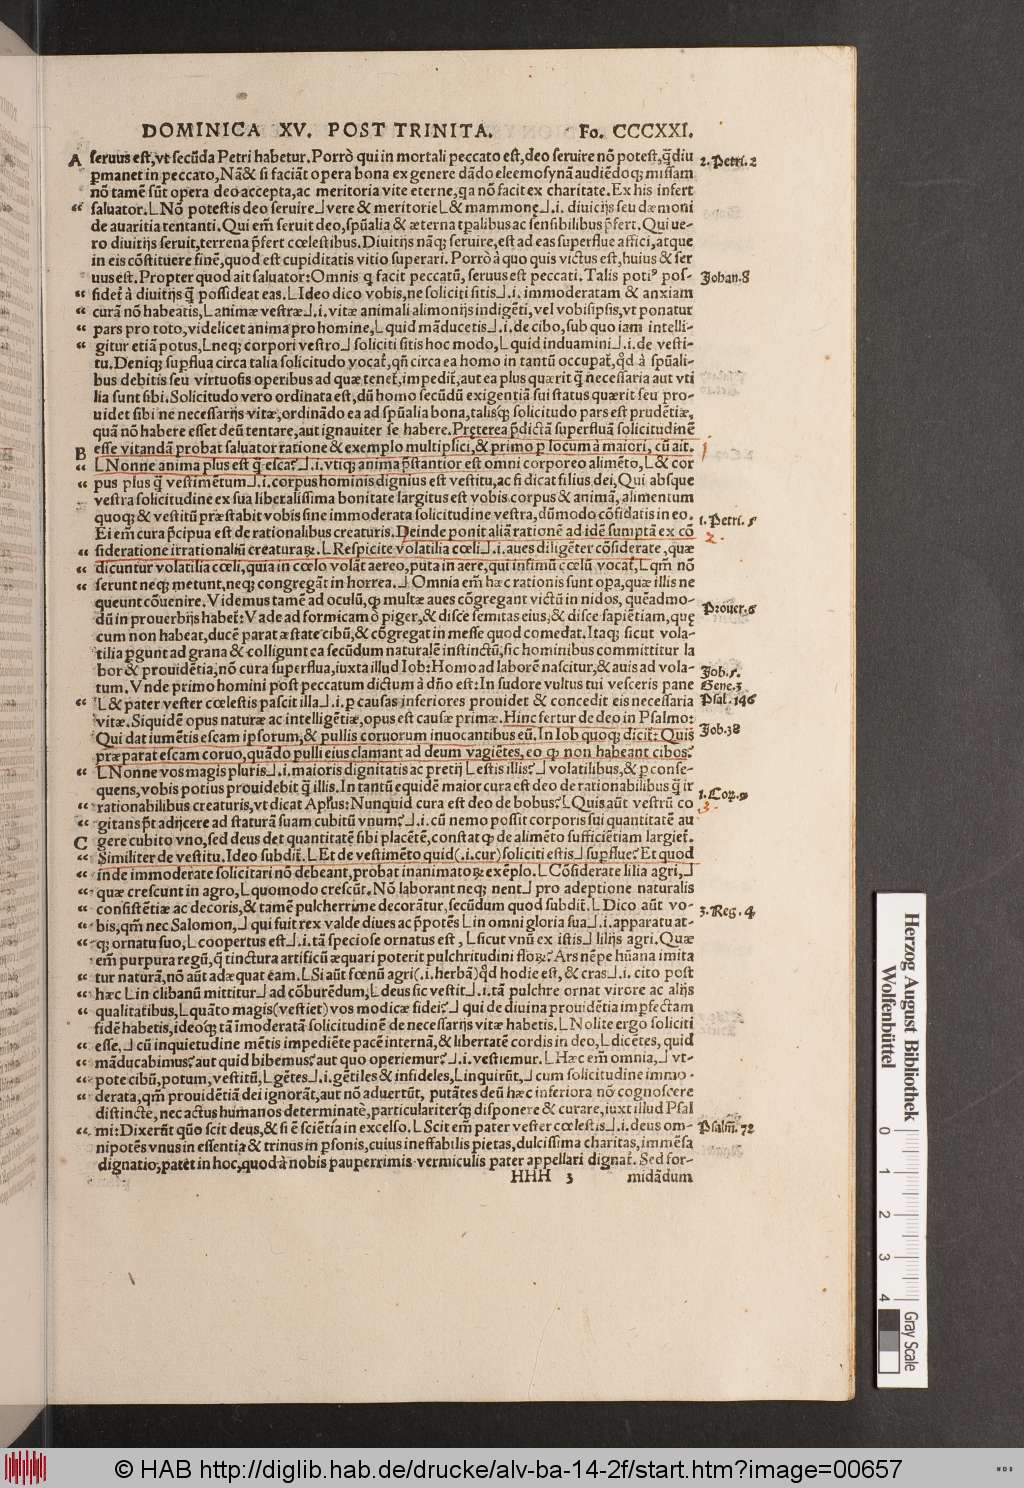 DOMINICA XV. POST TRINITA. Fo. CCCXXI.
A seruus est, vt secũda Petri habetur. Porrò qui in mortali peccato est, deo seruire nõ potest, q̃diu 2. Petri. 2
ꝑmanet in peccato, Nã & si faciãt opera bona ex genere dãdo eleemosynã audiẽdoq; missam
nõ tamẽ sũt opera deo accepta, ac meritoria vite eterne, qa nõ facit ex charitate. Ex his infert
“ saluator. L Nõ potestis deo seruire ⅃ vere & meritorie L & mammonę ⅃ .i. diuicijs seu dæmoni
de auaritia tentanti. Qui em̃ seruit deo, spũalia & æterna tꝑalibus ac sensibilibus p̃fert. Qui ue-
ro diuitijs seruit, terrena p̃fert cœlestibus. Diuitijs nãq; seruire, est ad eas superflue affici, atque
in eis cõstituere finẽ, quod est cupiditatis vitio superari. Porrò à quo quis victus est, huius & ser
uus est. Propter quod ait saluator: Omnis q facit peccatũ, seruus est peccati. Talis poti⁹ pos- Johan. 8
“ sidet̃ à diuitijs q̃ possideat eas. L Ideo dico vobis, ne soliciti sitis ⅃ .i. immoderatam & anxiam
“ curã nõ habeatis, L animæ vestræ ⅃ .i. vitæ animali alimonijs indigẽti, vel vobisipsis, vt ponatur
“ pars pro toto, videlicet anima pro homine, L quid mãducetis ⅃ .i. de cibo, sub quo iam intelli-
“ gitur etiã potus, L neq; corpori vestro ⅃ soliciti sitis hoc modo, L quid induamini ⅃ .i. de vesti-
tu. Deniq; suꝑflua circa talia solicitudo vocat̃, qñ circa ea homo in tantũ occupat̃, q̃d à spũali-
bus debitis seu virtuosis operibus ad quæ tenet̃, impedit̃, aut ea plus quærit q̃ necessaria aut vti
lia sunt sibi. Solicitudo vero ordinata est, dũ homo secũdũ exigentiã sui status quærit seu pro-
uidet sibi ne necessarijs vitæ, ordinãdo ea ad spũalia bona, talisq; solicitudo pars est prudẽtiæ,
quã nõ habere esset deũ tentare, aut ignauiter se habere. Pręterea p̃dictã superfluã solicitudinẽ
B esse vitandã probat saluator ratione & exemplo multiplici, & primo ꝑ locum à maiori, cũ ait. 1
“ L Nonne anima plus est q̃ esca? ⅃ .i. vtiq; anima p̃stantior est omni corporeo alimẽto, L & cor
“ pus plus q̃ vestimẽtum ⅃ .i. corpus hominis dignius est vestitu, ac si dicat filius dei, Qui absque
vestra solicitudine ex sua liberalissima bonitate largitus est vobis corpus & animã, alimentum
quoq; & vestitũ præstabit vobis sine immoderata solicitudine vestra, dũmodo cõfidatis in eo. 1. Petri. 5
Ei em̃ cura p̃cipua est de rationalibus creaturis. Deinde ponit aliã rationẽ ad idẽ sumptã ex cõ 2.
“ sideratione irrationaliũ creaturaꝝ. L Respicite volatilia cœli ⅃ .i. aues diligẽter cõsiderate, quæ
“ dicuntur volatilia cœli, quia in cœlo volãt aereo, puta in aere, qui infimũ cœlũ vocat̃, L qm̃ nõ
“ serunt neq; metunt, neq; congregãt in horrea. ⅃ Omnia em̃ hæc rationis sunt oꝑa, quæ illis ne
queunt cõuenire. Videmus tamẽ ad oculũ, ꝙ multæ aues cõgregant victũ in nidos, quẽadmo-
dũ in prouerbijs habet̃: Vade ad formicam ò piger, & disce semitas eius, & disce sapiẽtiam, quę Prouer. 6
cum non habeat, ducẽ parat æstate cibũ, & cõgregat in messe quod comedat. Itaq; sicut vola-
tilia ꝑgunt ad grana & colligunt ea secũdum naturalẽ instinctũ, sic hominibus committitur la
bor & prouidẽtia, nõ cura superflua, iuxta illud Iob: Homo ad laborẽ nascitur, & auis ad vola- Job. 5.
tum. Vnde primo homini post peccatum dictum à dño est: In sudore vultus tui vesceris pane Gene. 3
“ L & pater vester cœlestis pascit illa ⅃ .i. ꝑ causas inferiores prouidet & concedit eis necessaria Psal. 146
vitæ. Siquidẽ opus naturæ ac intelligẽtiæ, opus est causæ primæ. Hinc fertur de deo in Psalmo:
Qui dat iumẽtis escam ipsorum, & pullis coruorum inuocantibus eũ. In Iob quoq; dicit̃: Quis Job. 38
præparat escam coruo, quãdo pulli eius clamant ad deum vagiẽtes, eo ꝙ non habeant cibos?
“ L Nonne vos magis pluris ⅃ .i. maioris dignitatis ac pretij L estis illis? ⅃ volatilibus, & ꝑ conse-
quens, vobis potius prouidebit q̃ illis. In tantũ equidẽ maior cura est deo de rationabilibus q̃ ir
“ rationabilibus creaturis, vt dicat Apl̃us: Nunquid cura est deo de bobus? L Quis aũt vestrũ co 1. Cor. 9
“ gitans p̃t adijcere ad staturã suam cubitũ vnum? ⅃ .i. cũ nemo possit corporis sui quantitatẽ au 3.
C gere cubito vno, sed deus det quantitatẽ sibi placẽtẽ, constat ꝙ de alimẽto sufficiẽtiam largiet̃.
“ Similiter de vestitu. Ideo subdit̃. L Et de vestimẽto quid (.i. cur) soliciti estis ⅃ suꝑflue? Et quod
“ inde immoderate solicitari nõ debeant, probat inanimatoꝝ exẽplo. L Cõsiderate lilia agri, ⅃
“ quæ crescunt in agro, L quomodo crescũt. Nõ laborant neq; nent ⅃ pro adeptione naturalis
“ consistẽtiæ ac decoris, & tamẽ pulcherrime decorãtur, secũdum quod subdit̃. L Dico aũt vo- 3. Reg. 4
“ bis, qm̃ nec Salomon, ⅃ qui fuit rex valde diues ac p̃potẽs L in omni gloria sua ⅃ .i. apparatu at-
“ q; ornatu suo, L coopertus est ⅃ .i. tã speciose ornatus est, L sicut vnũ ex istis ⅃ lilijs agri. Quæ
em̃ purpura regũ, q̃ tinctura artificũ æquari poterit pulchritudini floꝝ? Ars nẽpe hũana imita
“ tur naturã, nõ aũt adæquat eam. L Si aũt fœnũ agri (.i. herbã) q̃d hodie est, & cras ⅃ .i. cito post
“ hæc L in clibanũ mittitur ⅃ ad cõburẽdum, L deus sic vestit ⅃ .i. tã pulchre ornat virore ac alijs
“ qualitatibus, L quãto magis (vestiet) vos modicæ fidei? ⅃ qui de diuina prouidẽtia imꝑfectam
fidẽ habetis, ideoq; tã immoderatã solicitudinẽ de necessarijs vitæ habetis. L Nolite ergo soliciti
“ esse, ⅃ cũ inquietudine mẽtis impediẽte pacẽ internã, & libertatẽ cordis in deo, L dicẽtes, quid
“ mãducabimus? aut quid bibemus? aut quo operiemur? ⅃ .i. vestiemur. L Hæc em̃ omnia, ⅃ vt-
“ pote cibũ, potum, vestitũ, L gẽtes ⅃ .i. gẽtiles & infideles, L inquirũt, ⅃ cum solicitudine immo-
“ derata, qm̃ prouidẽtiã dei ignorãt, aut nõ aduertũt, putãtes deũ hæc inferiora nõ cognoscere
distincte, nec actus humanos determinatè, particulariterq; disponere & curare, iuxt illud Psal
“ mi: Dixerũt quõ scit deus, & si ẽ sciẽtia in excelso. L Scit em̃ pater vester cœlestis ⅃ .i. deus om- Psalm̃. 72
nipotẽs vnus in essentia & trinus in ꝑsonis, cuius ineffabilis pietas, dulcissima charitas, immẽsa
dignatio, patet in hoc, quod à nobis pauperrimis vermiculis pater appellari dignat̃. Sed for-
HHH 3 midãdum
Herzog August Bibliothek
Wolfenbüttel
0 1 2 3 4
Gray Scale
© HAB http://diglib.hab.de/drucke/alv-ba-14-2f/start.htm?image=00657